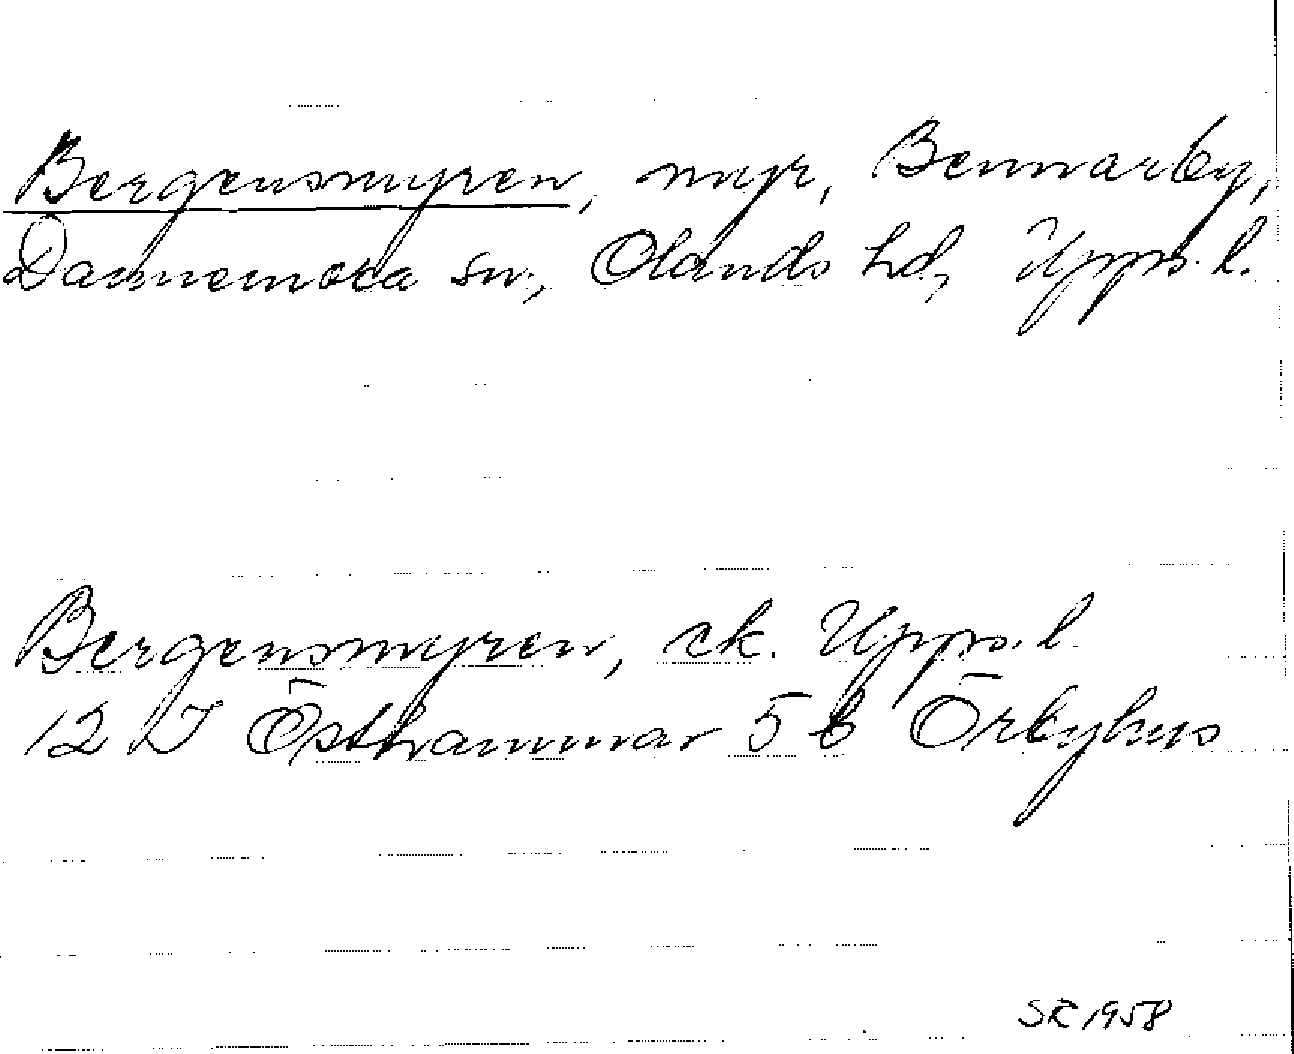 Bergensmyren, myr, Bennarby,
Dannemora sn, Olands hd, Upps. l.
Bergensmyren, ek. Upps. l.
12 I Östhammar 5 b Örbyhus
SR 1958